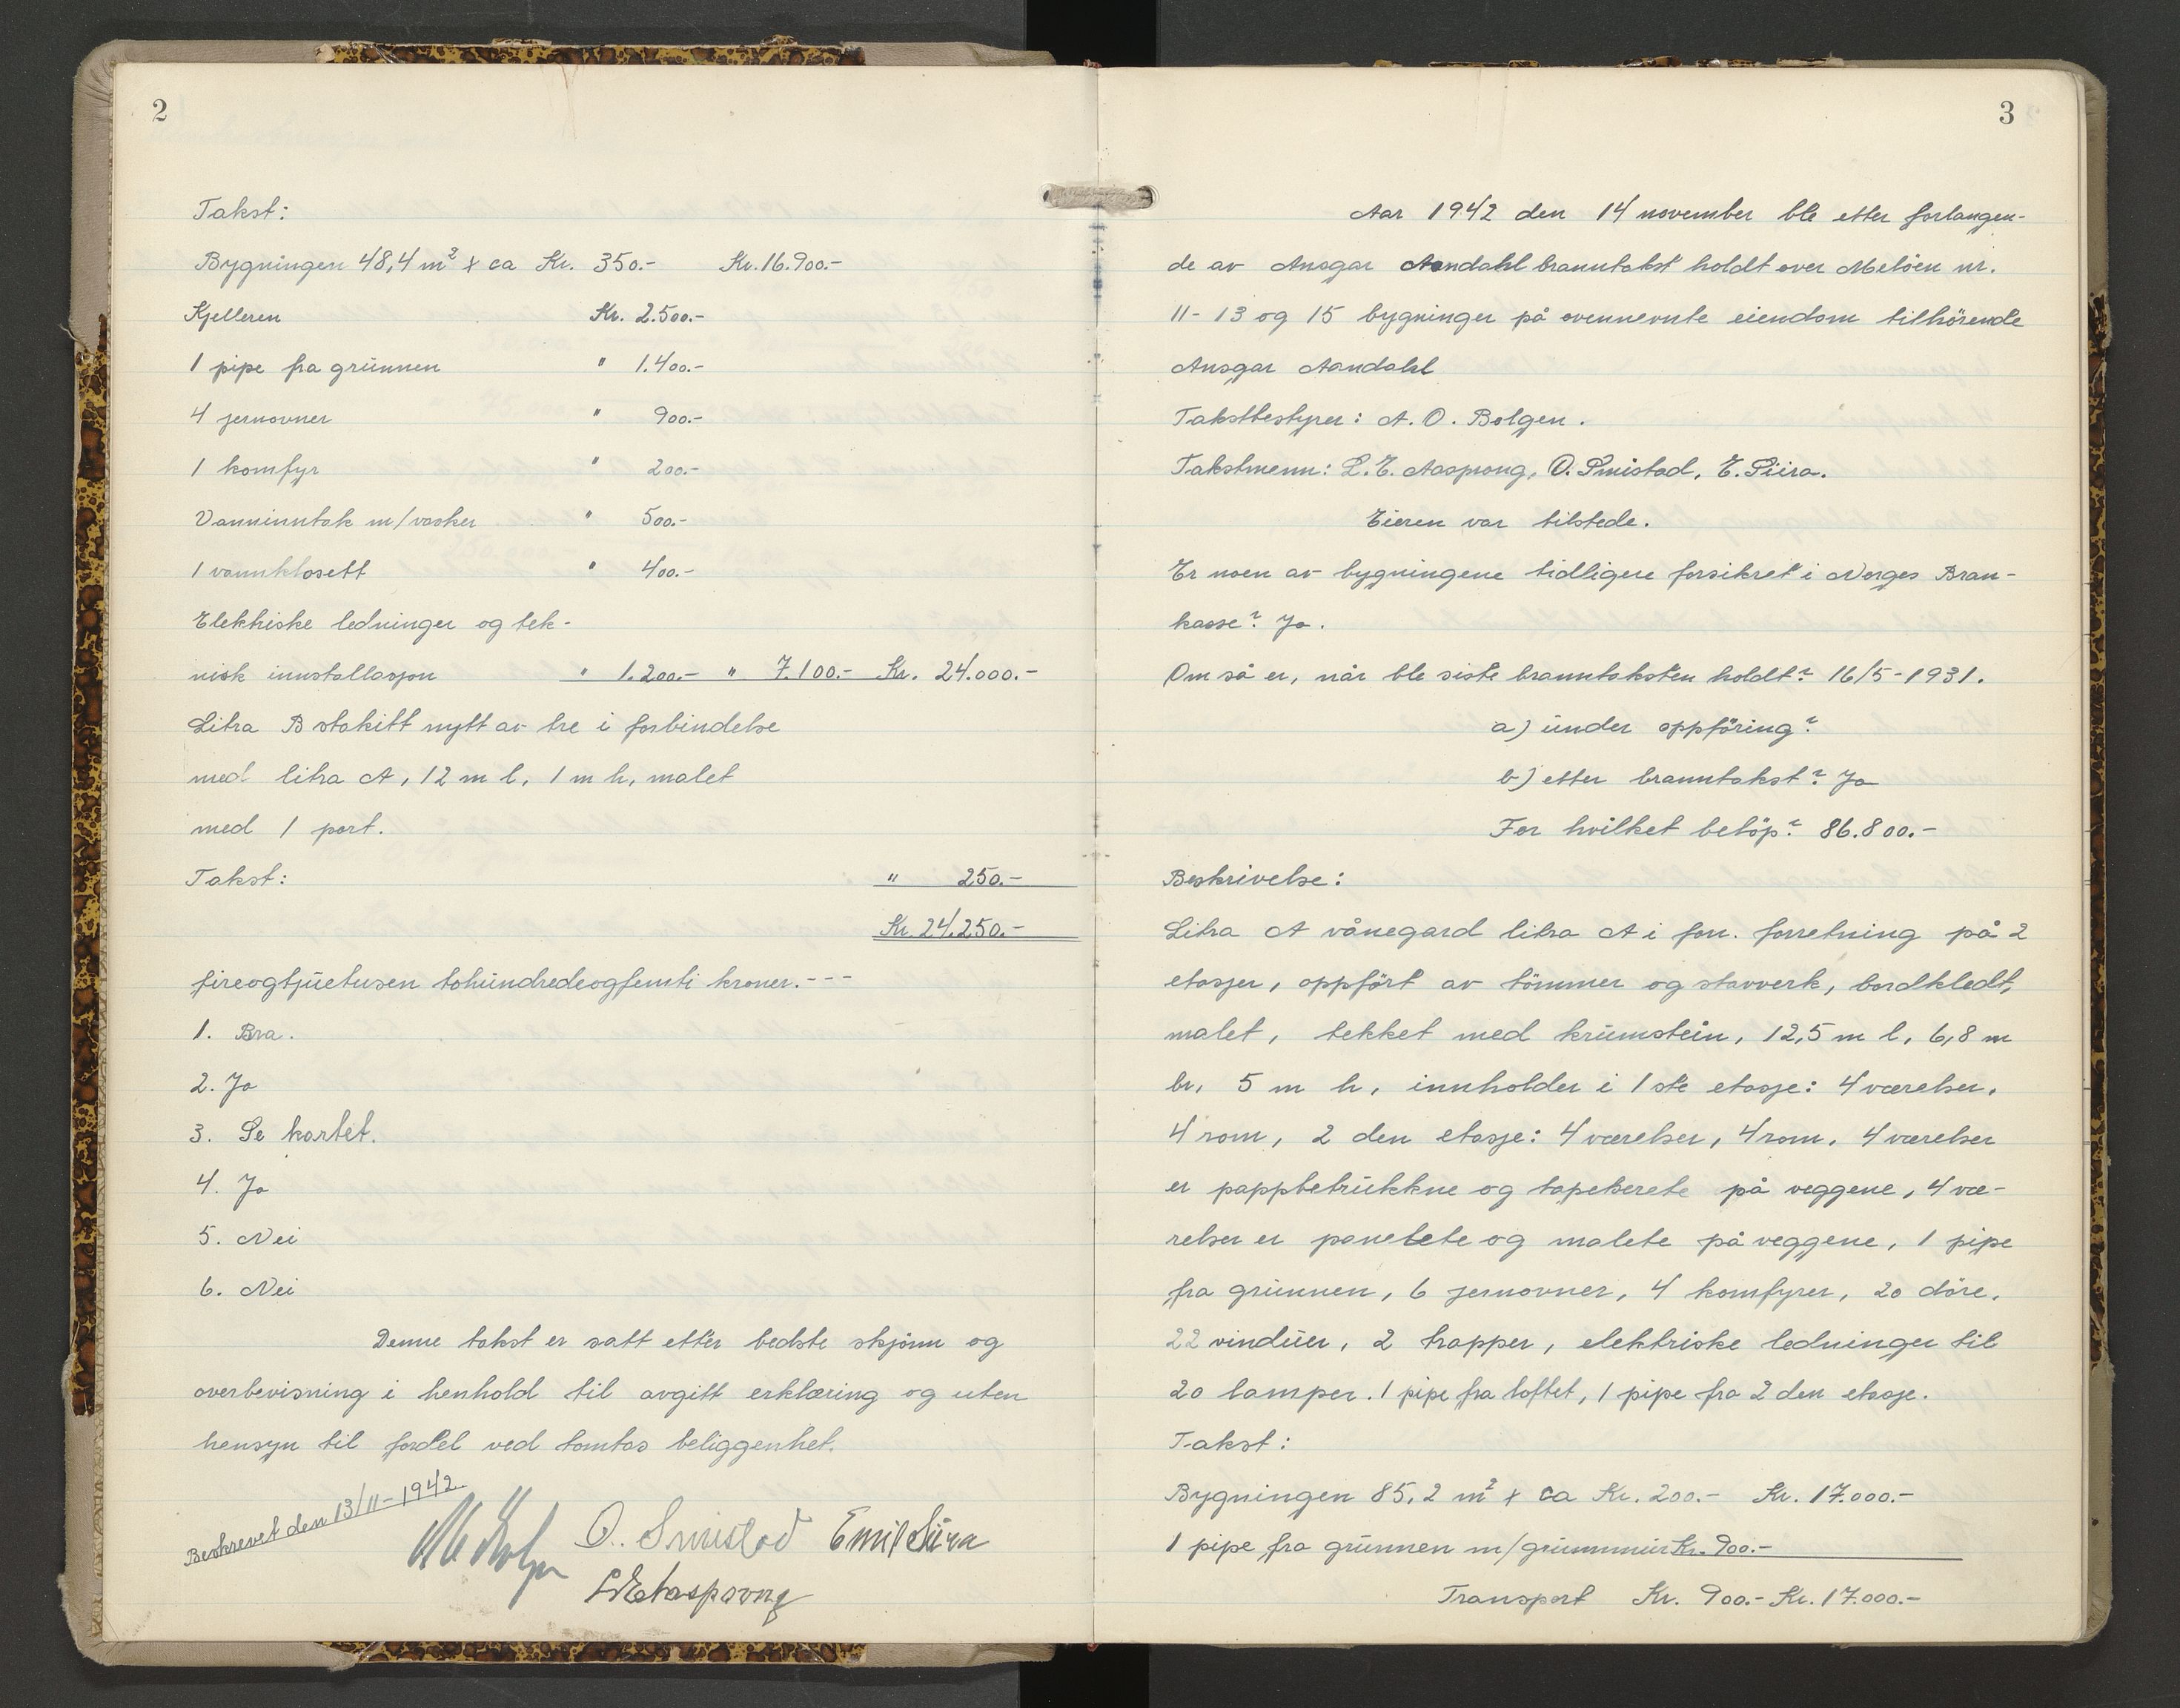 2
Takst:
Bygningen 48,4 m² x ca Kr. 350.- Kr. 16.900.-
Kjelleren Kr. 2.500.-
1 pipe fra grunnen " 1.400.-
4 jernovner " 900.-
1 komfyr " 200.-
Vanninntak m/vasker " 500.-
1 vannklosett " 400.-
Elektriske ledninger og tek-
nisk innstallasjon " 1.200.- " 7.100.- Kr. 24.000.-
Litra B stakitt nytt av tre i forbindelse
med litra A, 12 m l, 1 m h, malet
med 1 port.
Takst: " 250.-
Kr. 24.250.-
fireogtjuetusen tohundredeogfemti kroner.---
1. Bra.
2. Ja
3. Se kartet.
4. Ja
5. Nei
6. Nei
Denne takst er satt etter bedste skjønn og
overbevisning i henhold til avgitt erklæring og uten
hensyn til fordel ved tomtas beliggenhet.
Beskrevet den 13/11-1942
O. Smistad Emil Siira
L E Aasprong
3
Aar 1942 den 14 november ble etter forlangen-
de av Ansgar Aandahl branntakst holdt over Meløen nr.
11-13 og 15 bygninger på ovennevnte eiendom tilhörende
Ansgar Aandahl
Takstbestyrer: A. O. Bolgen.
Takstmenn: L. E. Aasprong, O. Smistad, E. Siira.
Eieren var tilstede.
Er noen av bygningene tidligere forsikret i Norges Bran-
kasse? Ja.
Om så er, når ble siste branntaksten holdt? 16/5-1931.
a) under oppföring?
b) etter branntakst? Ja
For hvilket belöp? 86.800.-
Beskrivelse:
Litra A vånegard litra A i forr. forretning på 2
etasjer, oppfört av tömmer og stavverk, bordkledt,
malet, tekket med krumstein, 12,5 m l, 6,8 m
br, 5 m h, innholder i 1 ste etasje: 4 værelser,
4 rom, 2 den etasje: 4 værelser, 4 rom, 4 værelser
er pappbetrukkne og tapeserete på veggene, 4 væ-
relser er panelete og malete på veggene, 1 pipe
fra grunnen, 6 jernovner, 4 komfyrer, 20 döre,
22 vinduer, 2 trapper, elektriske ledninger til
20 lamper. 1 pipe fra loftet, 1 pipe fra 2 den etasje.
Takst:
Bygningen 85,2 m² x ca Kr. 200.- Kr. 17.000.-
1 pipe fra grunnen m/grunnmur Kr. 900.-
Transport Kr. 900.- Kr. 17.000.-